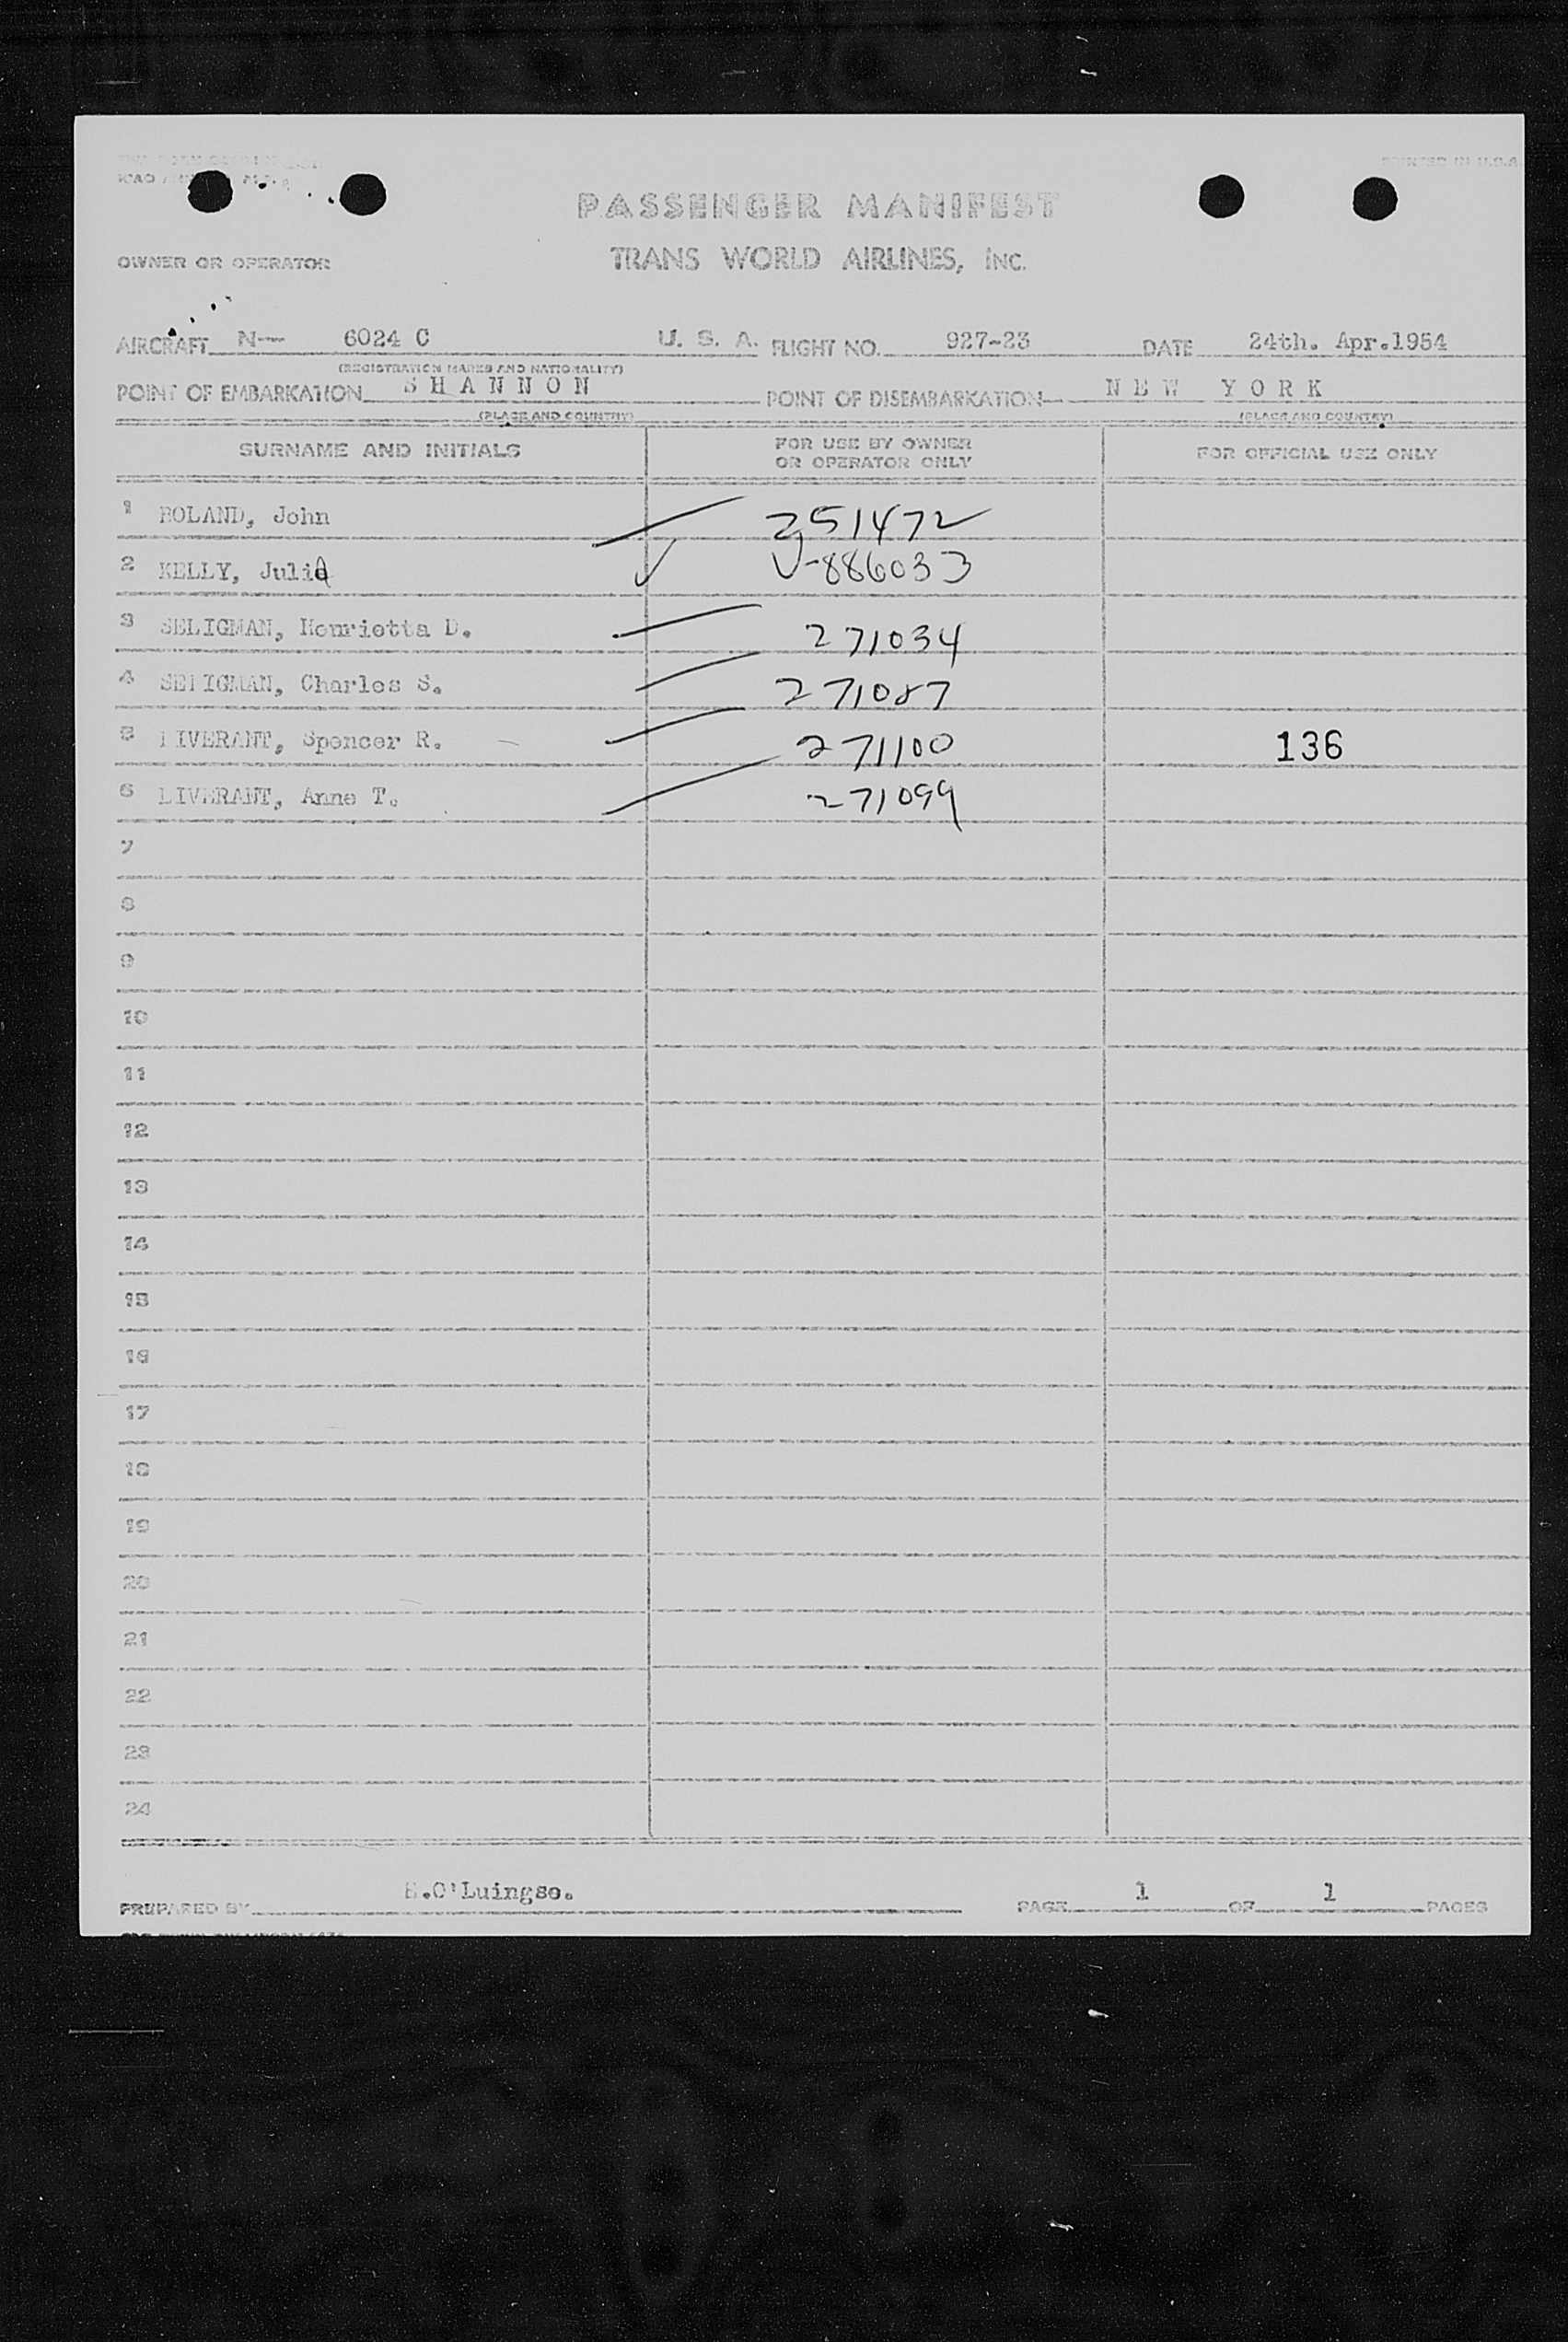 PRINTED IN U.S.A.
ICAO
PASSENGER MANIFEST
OWNER OR OPERATOR TRANS WORLD AIRLINES, INC.
AIRCRAFT N-- 6024 C U. S. A. FLIGHT NO. 927-23 DATE 24th. Apr.1954
(REGISTRATION MARKS AND NATIONALITY)
POINT OF EMBARKATION SHANNON POINT OF DISEMBARKATION NEW YORK
(PLACE AND COUNTRY) (PLACE AND COUNTRY)
SURNAME AND INITIALS FOR USE BY OWNER OR OPERATOR ONLY FOR OFFICIAL USE ONLY
1 BOLAND, John 251472
2 KELLY, Julia V-886033
3 SELIGMAN, Henrietta D. 271034
4 SELIGMAN, Charles S. 271087
5 LIVERANT, Spencer R. 271100 136
6 LIVERANT, Anne T. 271099
7
8
9
10
11
12
13
14
15
16
17
18
19
20
21
22
23
24
PREPARED BY O'Luingso. PAGE 1 OF 1 PAGES